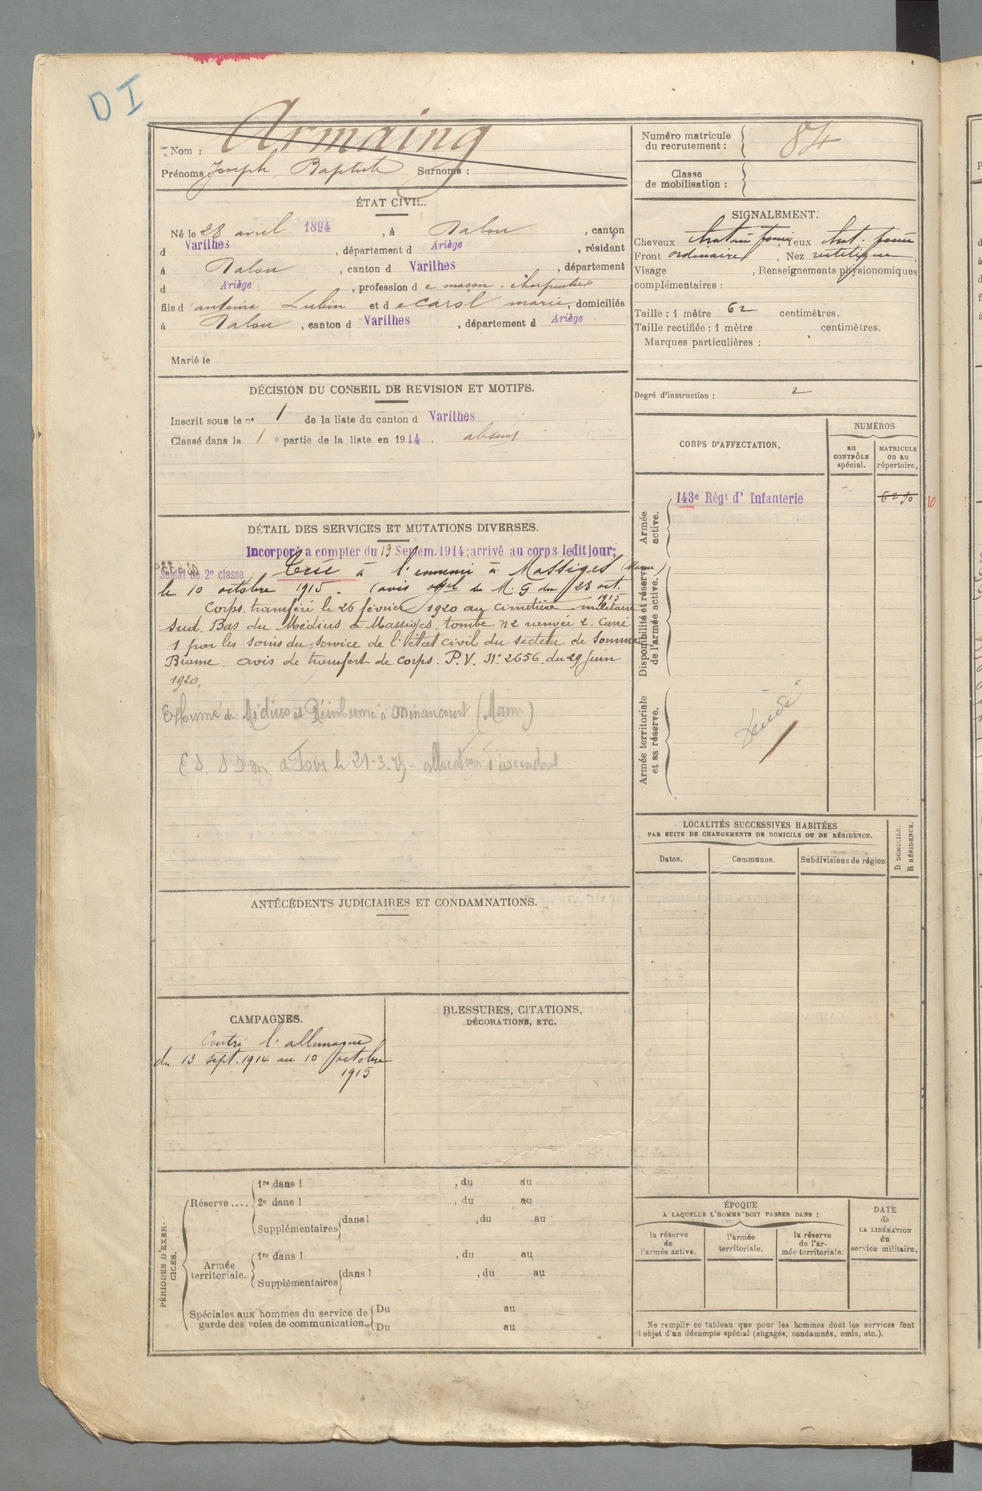 DI
Nom : Armaing
Prénoms Joseph Baptiste Surnoms :
Numéro matricule du recrutement : 84
Classe de mobilisation :
ÉTAT CIVIL.
Né le 28 avril 1894, à Dalou, canton
d Varilhes, département d Ariège, résidant
à Dalou, canton d Varilhes, département
d Ariège, profession de maçon - charpentier
fils d' antoine Lubin et de carol marie, domiciliés
à Dalou, canton d Varilhes, département d Ariège
Marié le
SIGNALEMENT.
Cheveux chatain foncé, yeux chat. foncé
Front ordinaire, Nez rectiligne
Visage , Renseignements physionomiques
complémentaires :
Taille : 1 mètre 62 centimètres.
Taille rectifiée : 1 mètre centimètres.
Marques particulières :
Degré d'instruction : 2
DÉCISION DU CONSEIL DE REVISION ET MOTIFS.
Inscrit sous le nº 1 de la liste du canton d Varilhes
Classé dans la 1 e partie de la liste en 1914. absent
CORPS D'AFFECTATION.
NUMÉROS
AU CONTRÔLE spécial.
MATRICULE OU AU répertoire.
Armée active.
143e Régt d' Infanterie
Disponibilité et réserve de l'armée active.
Armée territoriale et sa réserve.
DÉTAIL DES SERVICES ET MUTATIONS DIVERSES.
Incorporé a compter du 13 Septem. 1914; arrivé au corps ledit jour;
Soldat de 2e classe. Tué à l'ennemi à Massiges (Marne)
le 10 octobre 1915. (avis offel du M. G du 23 oct 1915
Corps transféré le 26 février 1920 au cimetière militaire
Sud. Bas du Médius à Massiges. tombe nº 2 rangée 2. Carré
1 par les soins du service de l'état civil du secteur de Somme
Bionne. avis de transfert de corps. P.V. Nº 2656 du 29 juin
1920.
Exhumé de Médius et Réinhumé à Minaucourt (Marne)
à Foix le 21-3- allocation d'ascendant
LOCALITÉS SUCCESSIVES HABITÉES
PAR SUITE DE CHANGEMENTS DE DOMICILE OU DE RÉSIDENCE.
Dates.
Communes.
Subdivisions de région
D DOMICILE.
R RÉSIDENCE.
ANTÉCÉDENTS JUDICIAIRES ET CONDAMNATIONS.
CAMPAGNES.
Contre l'allemagne
du 13 sept. 1914 au 10 octobre
1915
BLESSURES, CITATIONS,
DÉCORATIONS, ETC.
PÉRIODES D'EXERCICES.
Réserve ....
1re dans l , du au
2e dans l , du au
Supplémentaires dans l , du au
Armée territoriale.
1re dans l , du au
Supplémentaires dans l , du au
Spéciales aux hommes du service de garde des voies de communication.
Du au
Du au
ÉPOQUE
A LAQUELLE L'HOMME DOIT PASSER DANS :
la réserve de l'armée active.
l'armée territoriale.
la réserve de l'armée territoriale.
DATE de LA LIBÉRATION du service militaire.
Ne remplir ce tableau que pour les hommes dont les services font
l'objet d'un décompte spécial (engagés, condamnés, omis, etc.).